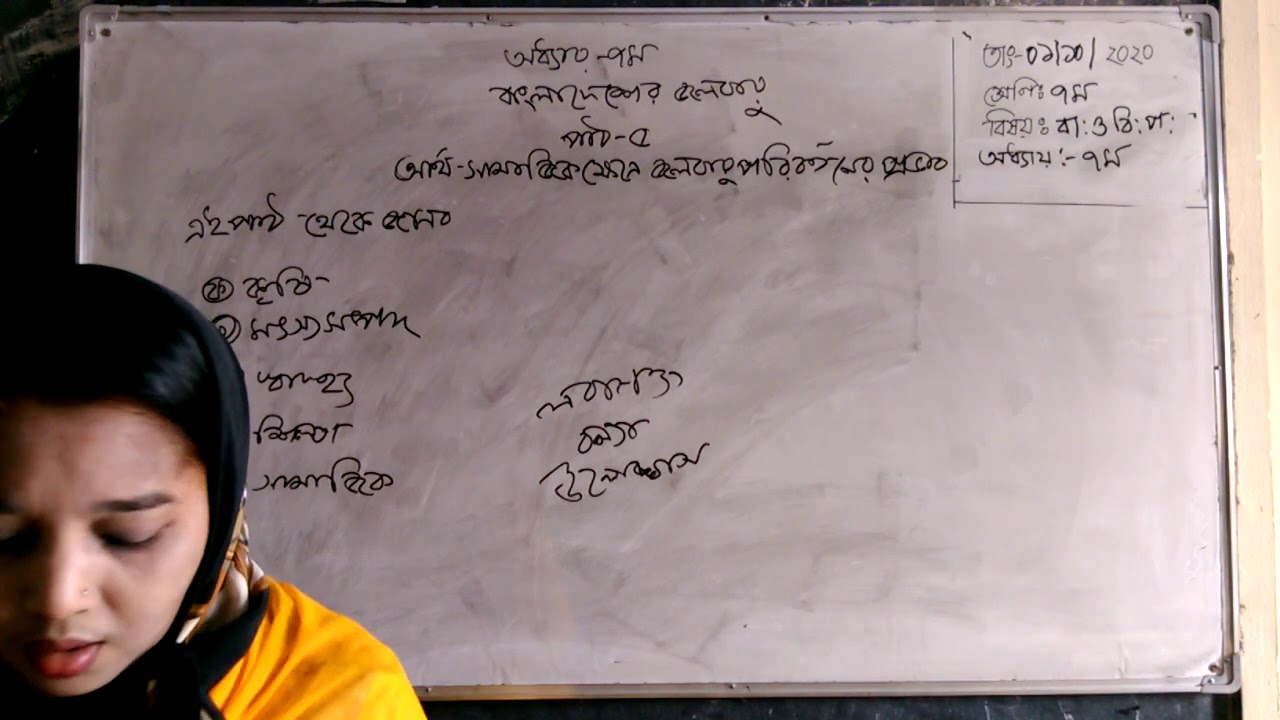 অধ্যায়-৭ম
বাংলাদেশের জলবায়ু
পাঠ-৫
আর্থ-সামাজিকক্ষেত্রে জলবায়ু পরিবর্তনের প্রভাব
তাং-০১/১০/২০২০
শ্রেণিঃ ৭ম
বিষয়ঃ বা:ও বি:প:
অধ্যায়:-৭ম
এই পাঠ থেকে জানব
কৃষি-
মৎস্য সম্পদ
স্বাস্থ্য
শিক্ষা
সামাজিক
লবণাক্ততা
বন্যা
জলোচ্ছ্বাস